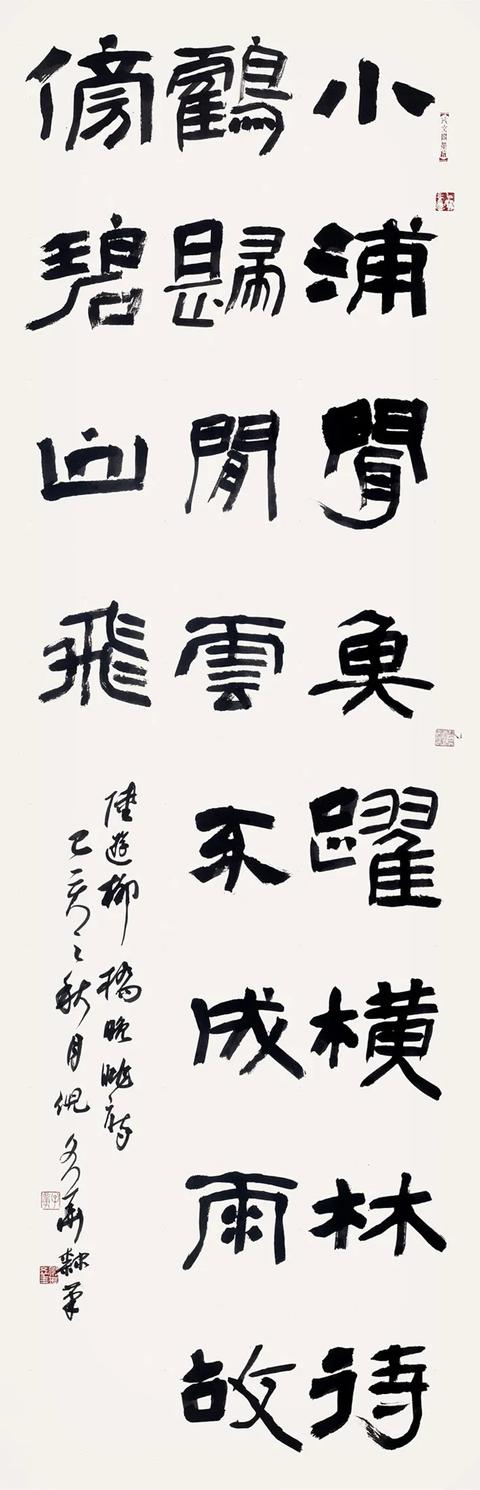 小浦聞魚躍橫林待
鶴歸閒雲不成雨故
傍碧山飛
陸遊柳橋晚眺詩
己亥之秋月倪文華隸筆